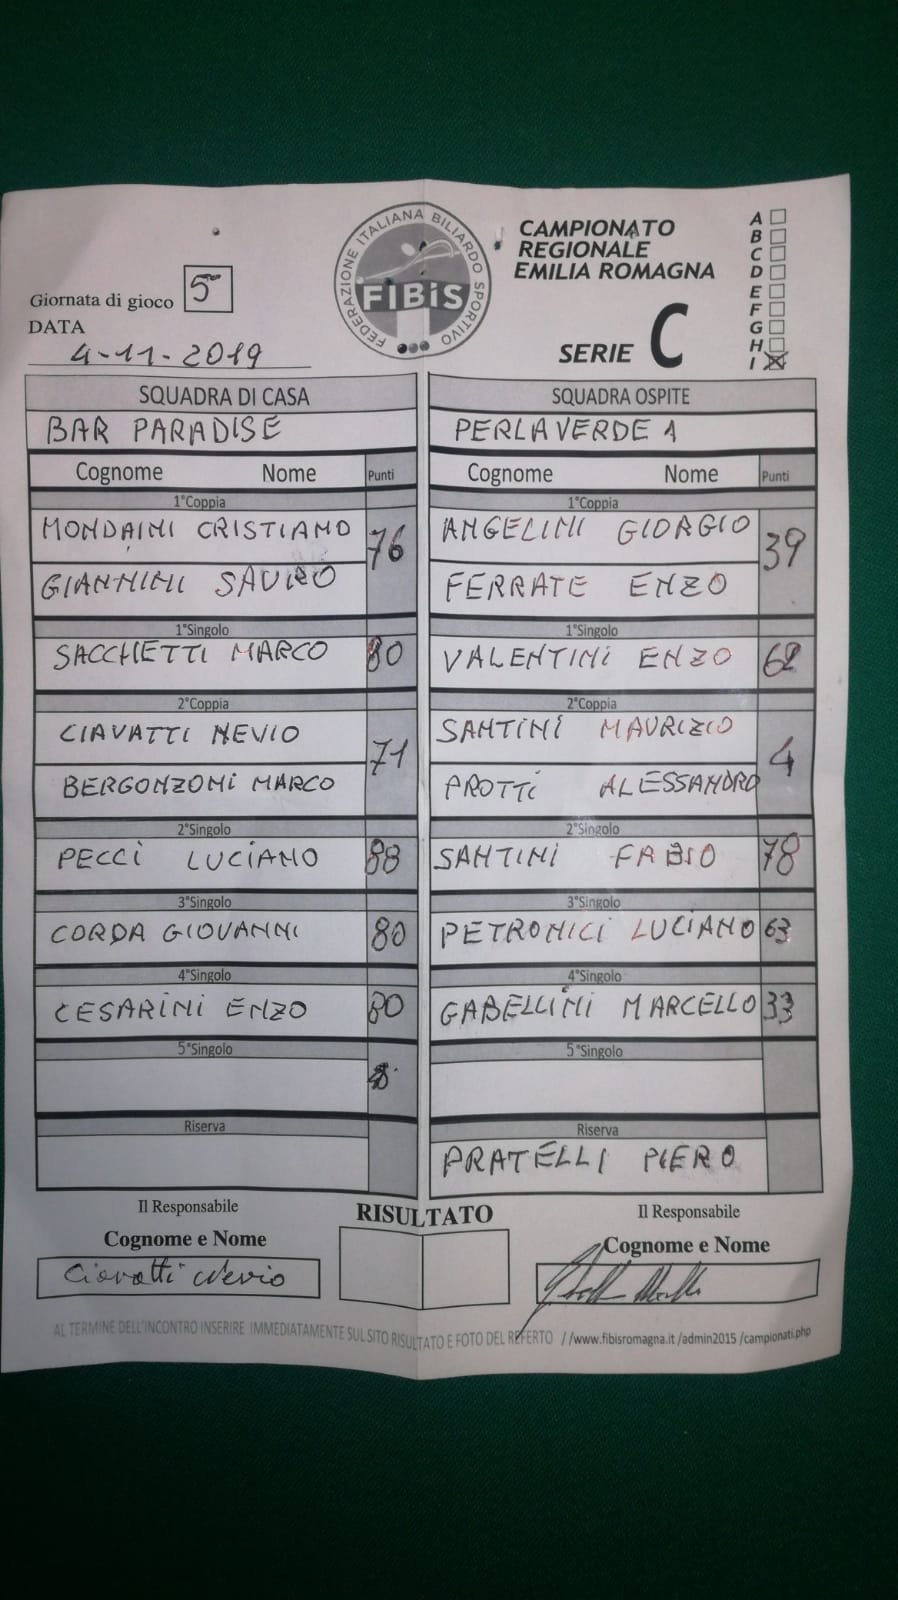 FEDERAZIONE ITALIANA BILIARDO SPORTIVO
FIBiS
CAMPIONATO
REGIONALE
EMILIA ROMAGNA
SERIE C
A
B
C
D
E
F
G
H
I
Giornata di gioco 5ª
DATA
4-11-2019
SQUADRA DI CASA SQUADRA OSPITE
BAR PARADISE PERLAVERDE 1
Cognome Nome Punti Cognome Nome Punti
1°Coppia 1°Coppia
MONDAINI CRISTIANO 76 ANGELINI GIORGIO 39
GIANNINI SAURO FERRATE ENZO
1°Singolo 1°Singolo
SACCHETTI MARCO 80 VALENTINI ENZO 62
2°Coppia 2°Coppia
CIAVATTI NEVIO 71 SANTINI MAURIZIO 4
BERGONZONI MARCO PROTTI ALESSANDRO
2°Singolo 2°Singolo
PECCI LUCIANO 88 SANTINI FABIO 78
3°Singolo 3°Singolo
CORDA GIOVANNI 80 PETRONICI LUCIANO 63
4°Singolo 4°Singolo
CESARINI ENZO 80 GABELLINI MARCELLO 33
5°Singolo 5°Singolo
Riserva Riserva
PRATELLI PIERO
Il Responsabile RISULTATO Il Responsabile
Cognome e Nome Cognome e Nome
Ciavatti Nevio
AL TERMINE DELL'INCONTRO INSERIRE IMMEDIATAMENTE SUL SITO RISULTATO E FOTO DEL REFERTO //www.fibisromagna.it /admin2015 /campionati.php